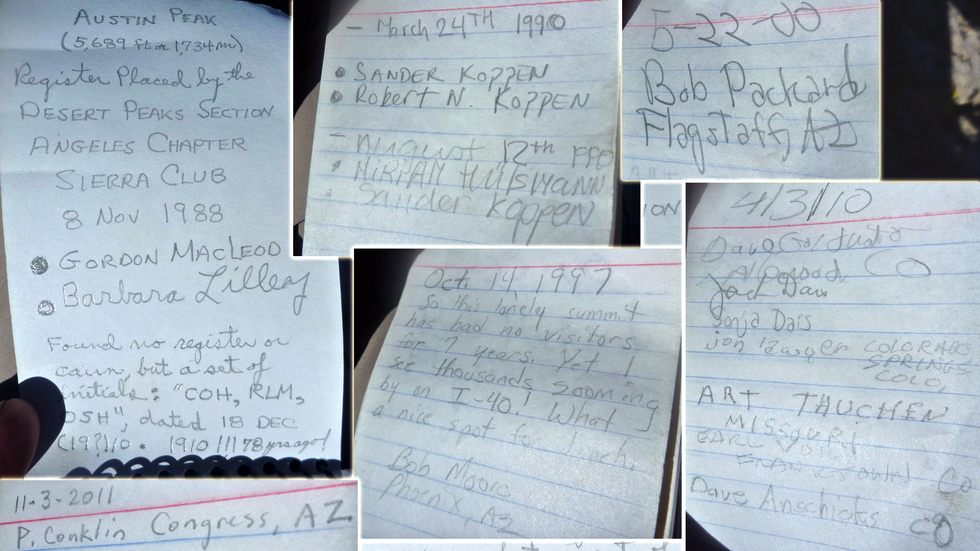 AUSTIN PEAK
(5,689 ft or 1,734 m)
Register Placed by the
DESERT PEAKS SECTION
ANGELES CHAPTER
SIERRA CLUB
8 Nov 1988
GORDON MACLEOD
Barbara Lilley
Found no register or
cairn, but a set of
initials: "COH, RLM,
DSH", dated 18 DEC
1910!!! 78 yrs ago!
- March 24TH 1990
SANDER KOPPEN
Robert N. KOPPEN
- August 12th
Sander Koppen
5-22-00
Bob Packard
Flagstaff, AZ
ION
Oct. 14, 1997
So this lonely summit
has had no visitors
for 7 years. Yet I
see thousands zooming
by on I-40! What
a nice spot for lunch.
Bob Moore
Phoenix, AZ
4/3/10
Dave
CO
Jack Davis
Sonja Dais
COLORADO
SPRINGS
COLO,
ART TAUCHEN
MISSOURI
CO
Dave
CO
11-3-2011
P. Conklin Congress, AZ